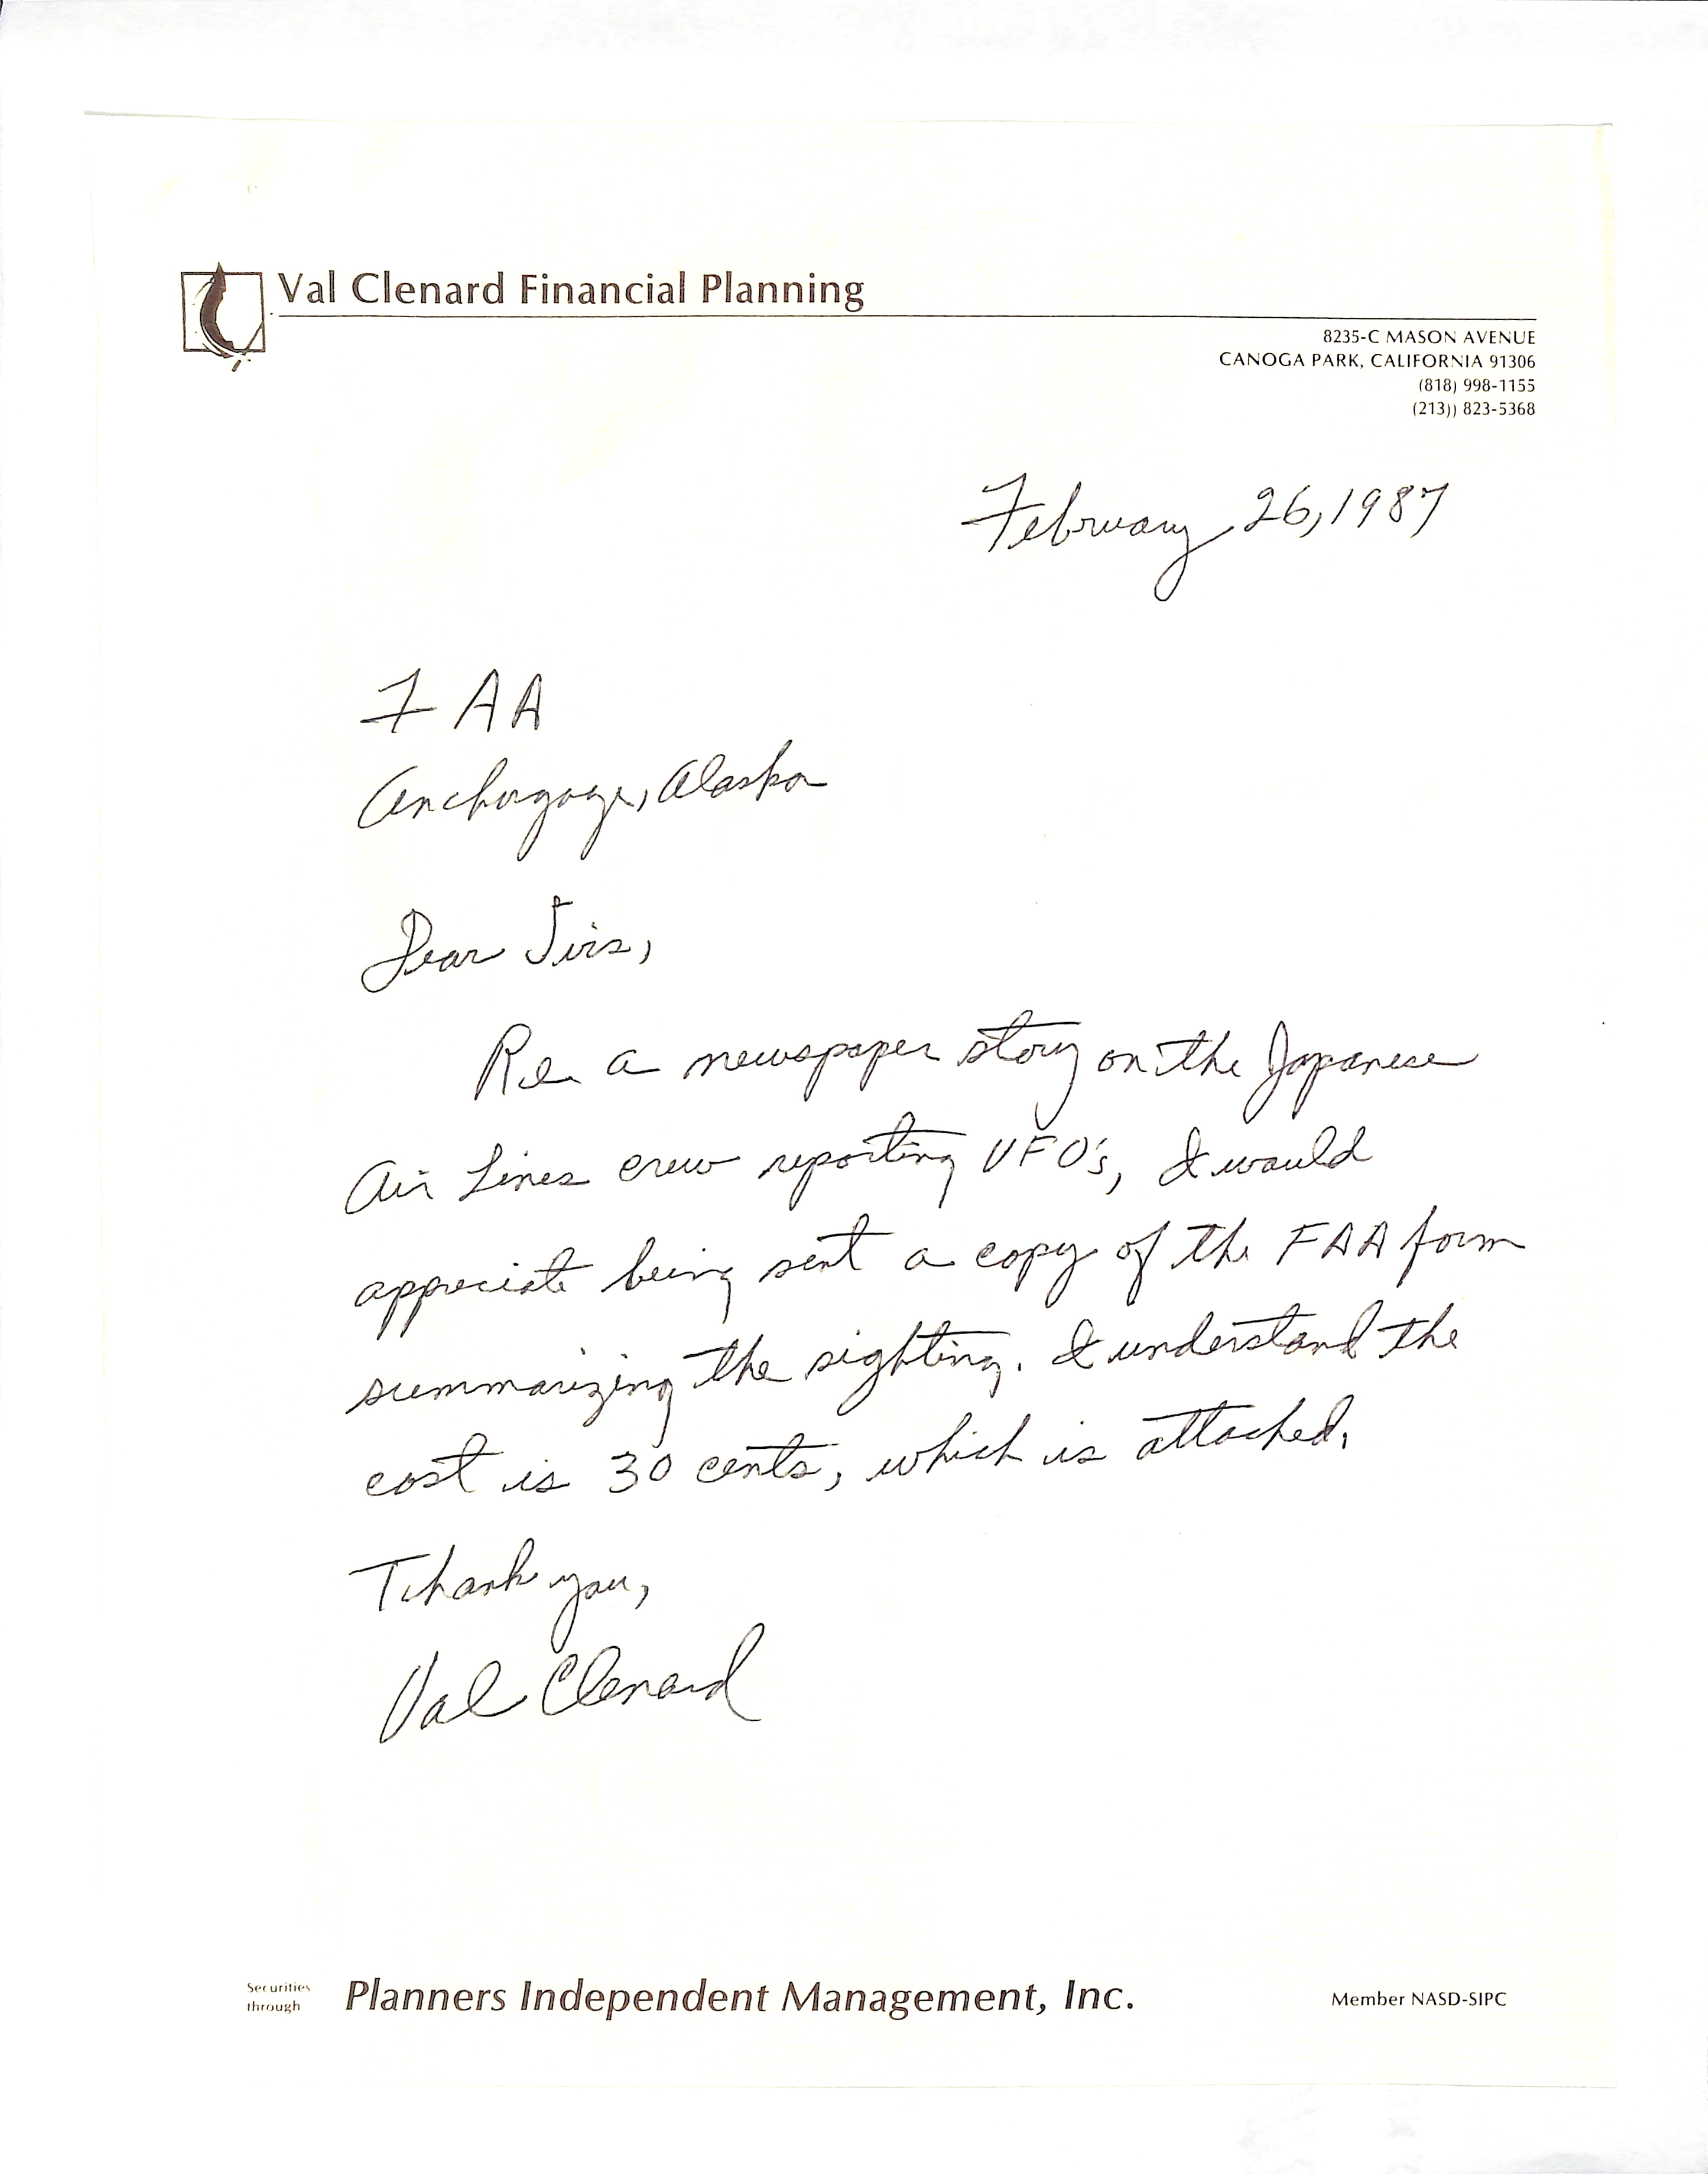 Val Clenard Financial Planning
8235-C MASON AVENUE
CANOGA PARK, CALIFORNIA 91306
(818) 998-1155
(213)) 823-5368
February 26, 1987
FAA
Anchorgage, Alaska
Dear Sirs,
Re a newspaper story on the Japanese
Air Lines crew reporting UFO's, I would
appreciate being sent a copy of the FAA form
summarizing the sighting. I understand the
cost is 30 cents, which is attached.
Thank you,
Val Clenard
Securities
through
Planners Independent Management, Inc.
Member NASD-SIPC